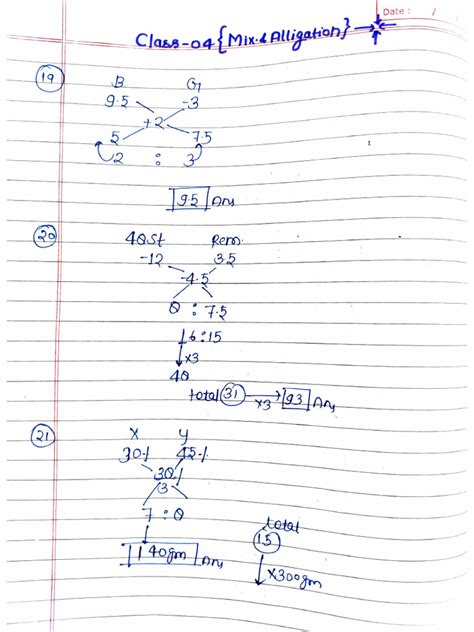 Date : /
Class-04 {Mix. & Alligation}
19
B G
9.5 -3
+2
5 7.5
2 : 3
9.5 Ans
20
48St Rem.
-12 3.5
-4.5
8 : 7.5
16:15
×3
48
total 31 ×3 93 Ans
21
X Y
30% 45%
38%
7 : 8
total
15
140gm Ans
×300gm